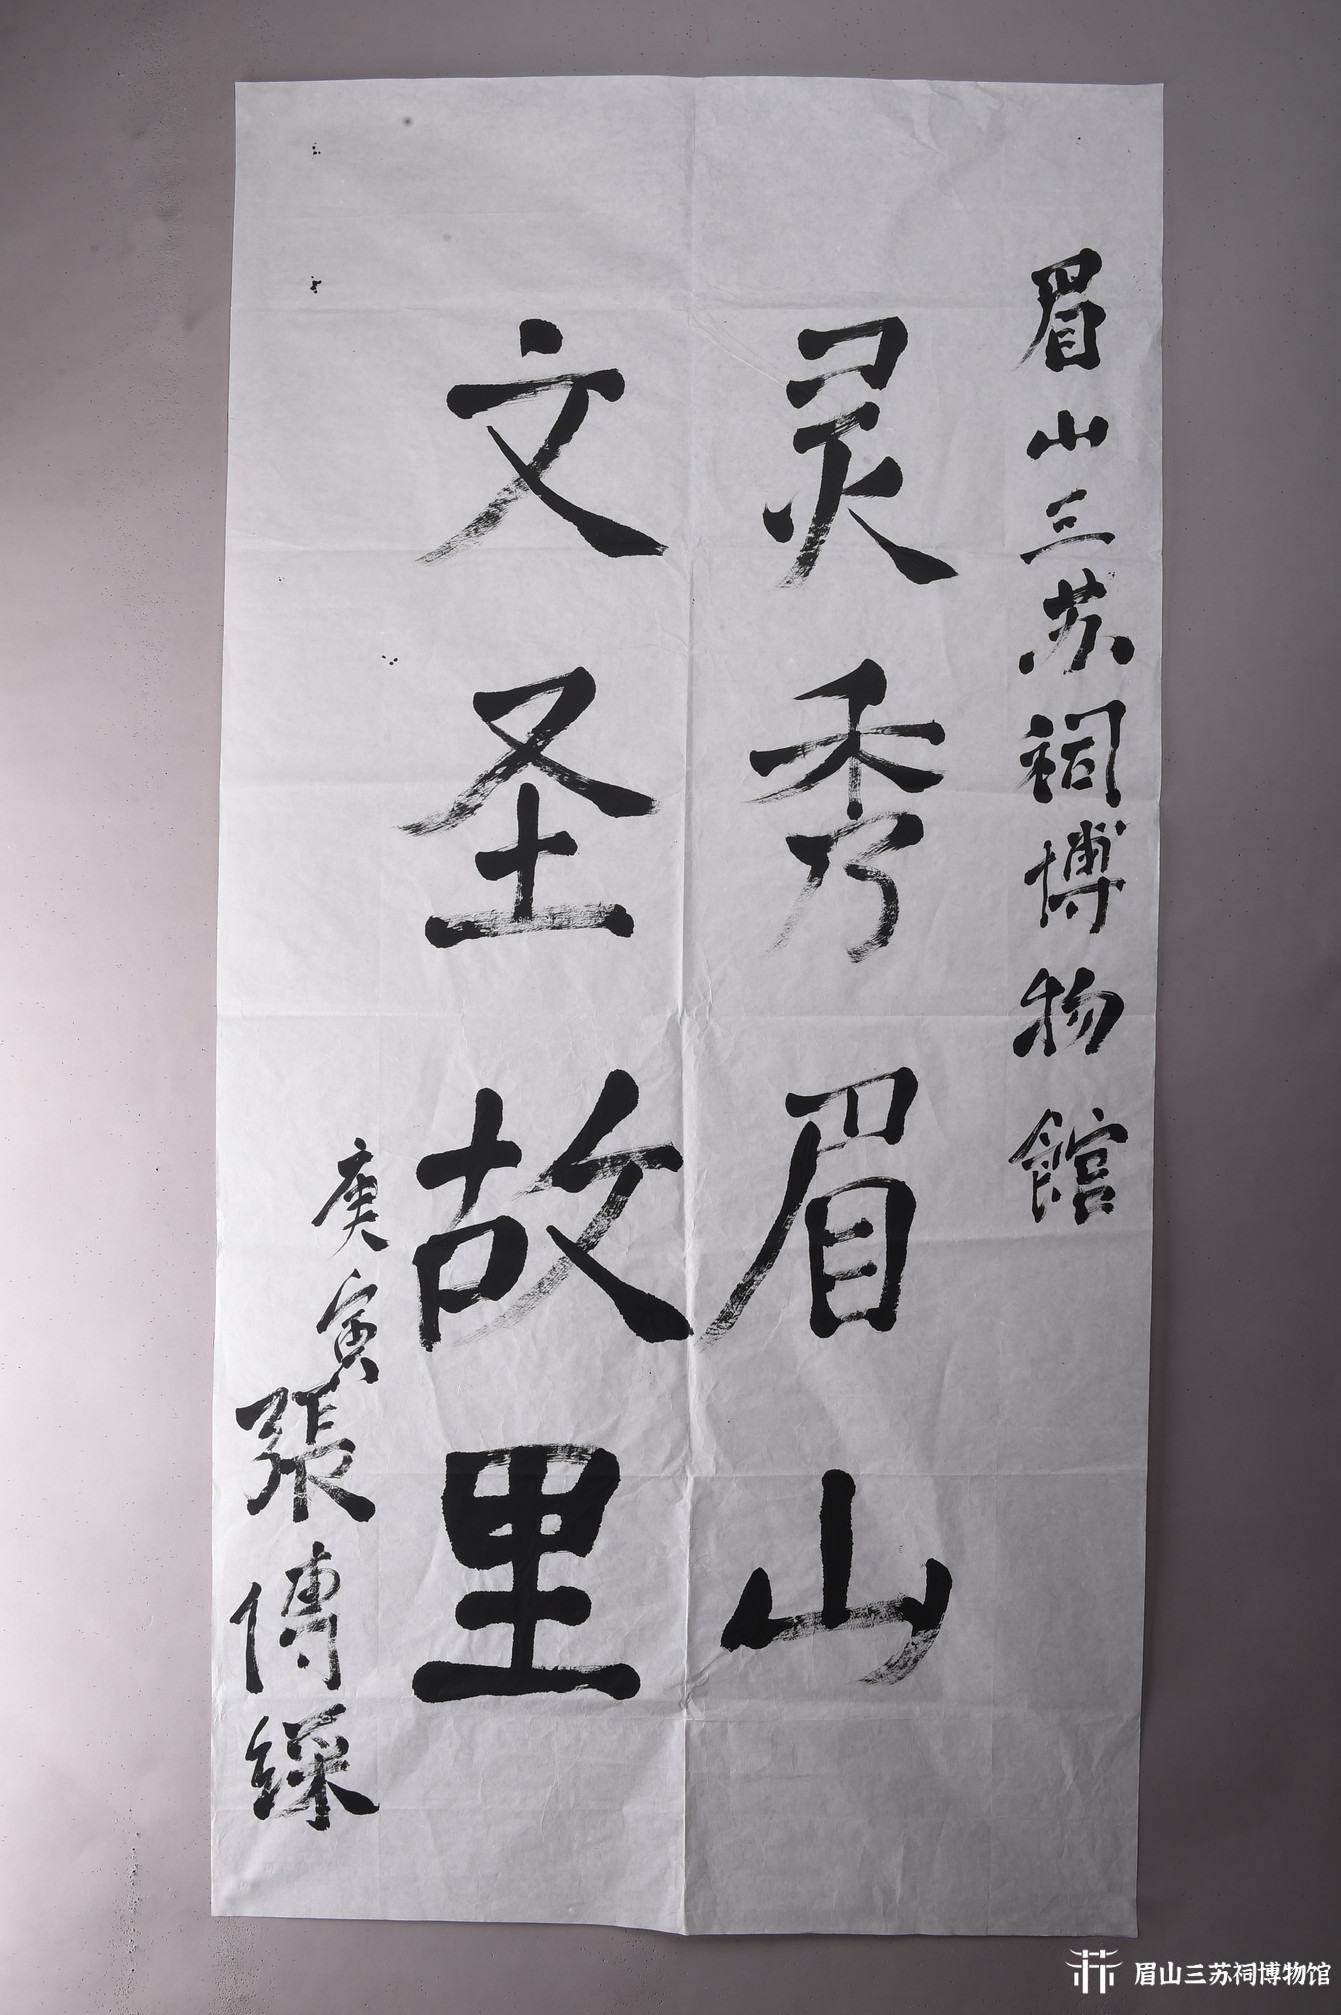 眉山三苏祠博物館
灵秀眉山
文圣故里
庚寅
張傳綵
眉山三苏祠博物馆